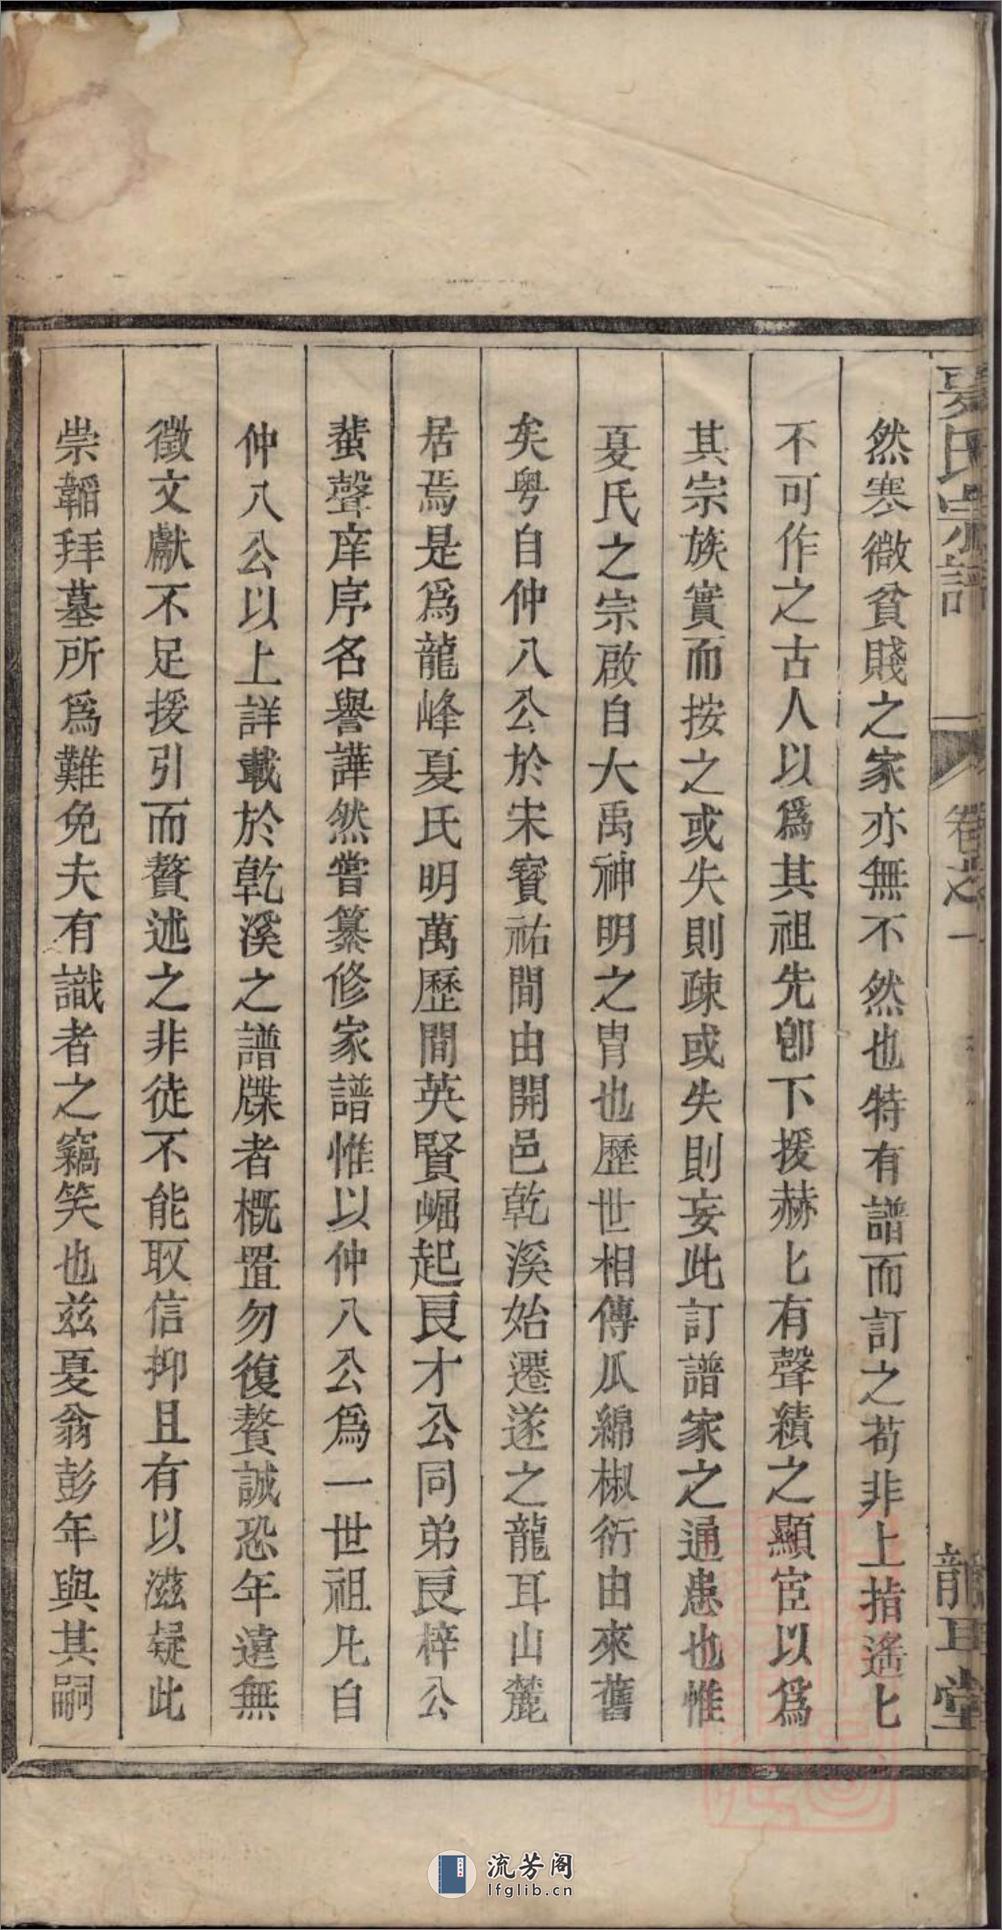 夏氏宗譜 卷之一 龍耳堂
然寒微貧賤之家亦無不然也特有譜而訂之苟非上指遙匕
不可作之古人以爲其祖先卽下援赫匕有聲績之顯宦以爲
其宗族實而按之或失則疎或失則妄此訂譜家之通患也惟
夏氏之宗啟自大禹神明之胄也歷世相傳瓜綿椒衍由來舊
矣粤自仲八公於宋寳祐間由開邑乾溪始遷遂之龍耳山麓
居焉是爲龍峰夏氏明萬歷間英賢崛起良才公同弟良梓公
蜚聲庠序名譽譁然嘗纂修家譜惟以仲八公爲一世祖凡自
仲八公以上詳載於乾溪之譜牒者概置勿復贅誠恐年遠無
徵文獻不足援引而贅述之非徒不能取信抑且有以滋疑此
崇韜拜墓所爲難免夫有識者之竊笑也兹夏翁彭年與其嗣
流芳阁
lfglib.cn